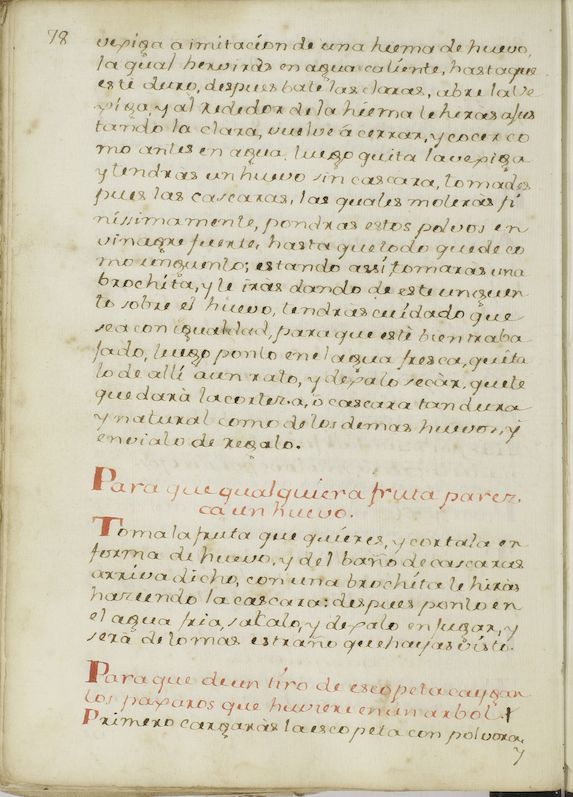 78
vexiga a imitacion de una hiema de huevo,
la qual hervirás en agua caliente, hasta que
esté duro, despues bate las claras, abre la ve
xiga, y al rededor de la hiema le heras ajus
tando la clara, vuelve á cerrar, y cocer co
mo antes en agua, luego quita la vexiga
y tendras un huevo sin cascara, toma des
pues las cascaras, las quales moleràs fi
nissimamente, pondras estos polvos en
vinagre fuerte, hasta que todo quede co
mo unguento; estando assi tomaras una
brochita, y le iras dando de este unguen
to sobre el huevo, tendras cuidado que
sea con igualdad, para que esté bien traba
jado, luego ponlo en el agua fresca, quita
lo de allí a un rato, y dexalo secàr, que le
quedarà la corteza, ò cascara tan dura
y natural como de los demas huevos, y
envialo de regalo.
Para que qualquiera fruta parez.
ca un huevo.
Toma la fruta que quieres, y cortala en
forma di huevo, y del baño de cascaras
arriva dicho, con una brochita le hiràs
haziendo la cascara: despues ponlo en
el agua fria, sacalo, y dexalo enjugar, y
serà de lo mas estraño que hayas visto.
Para que de un tiro de escopeta caygan
los paxaros que huviere en un arbol. †
Primero cargaràs la escopeta con polvora,
y